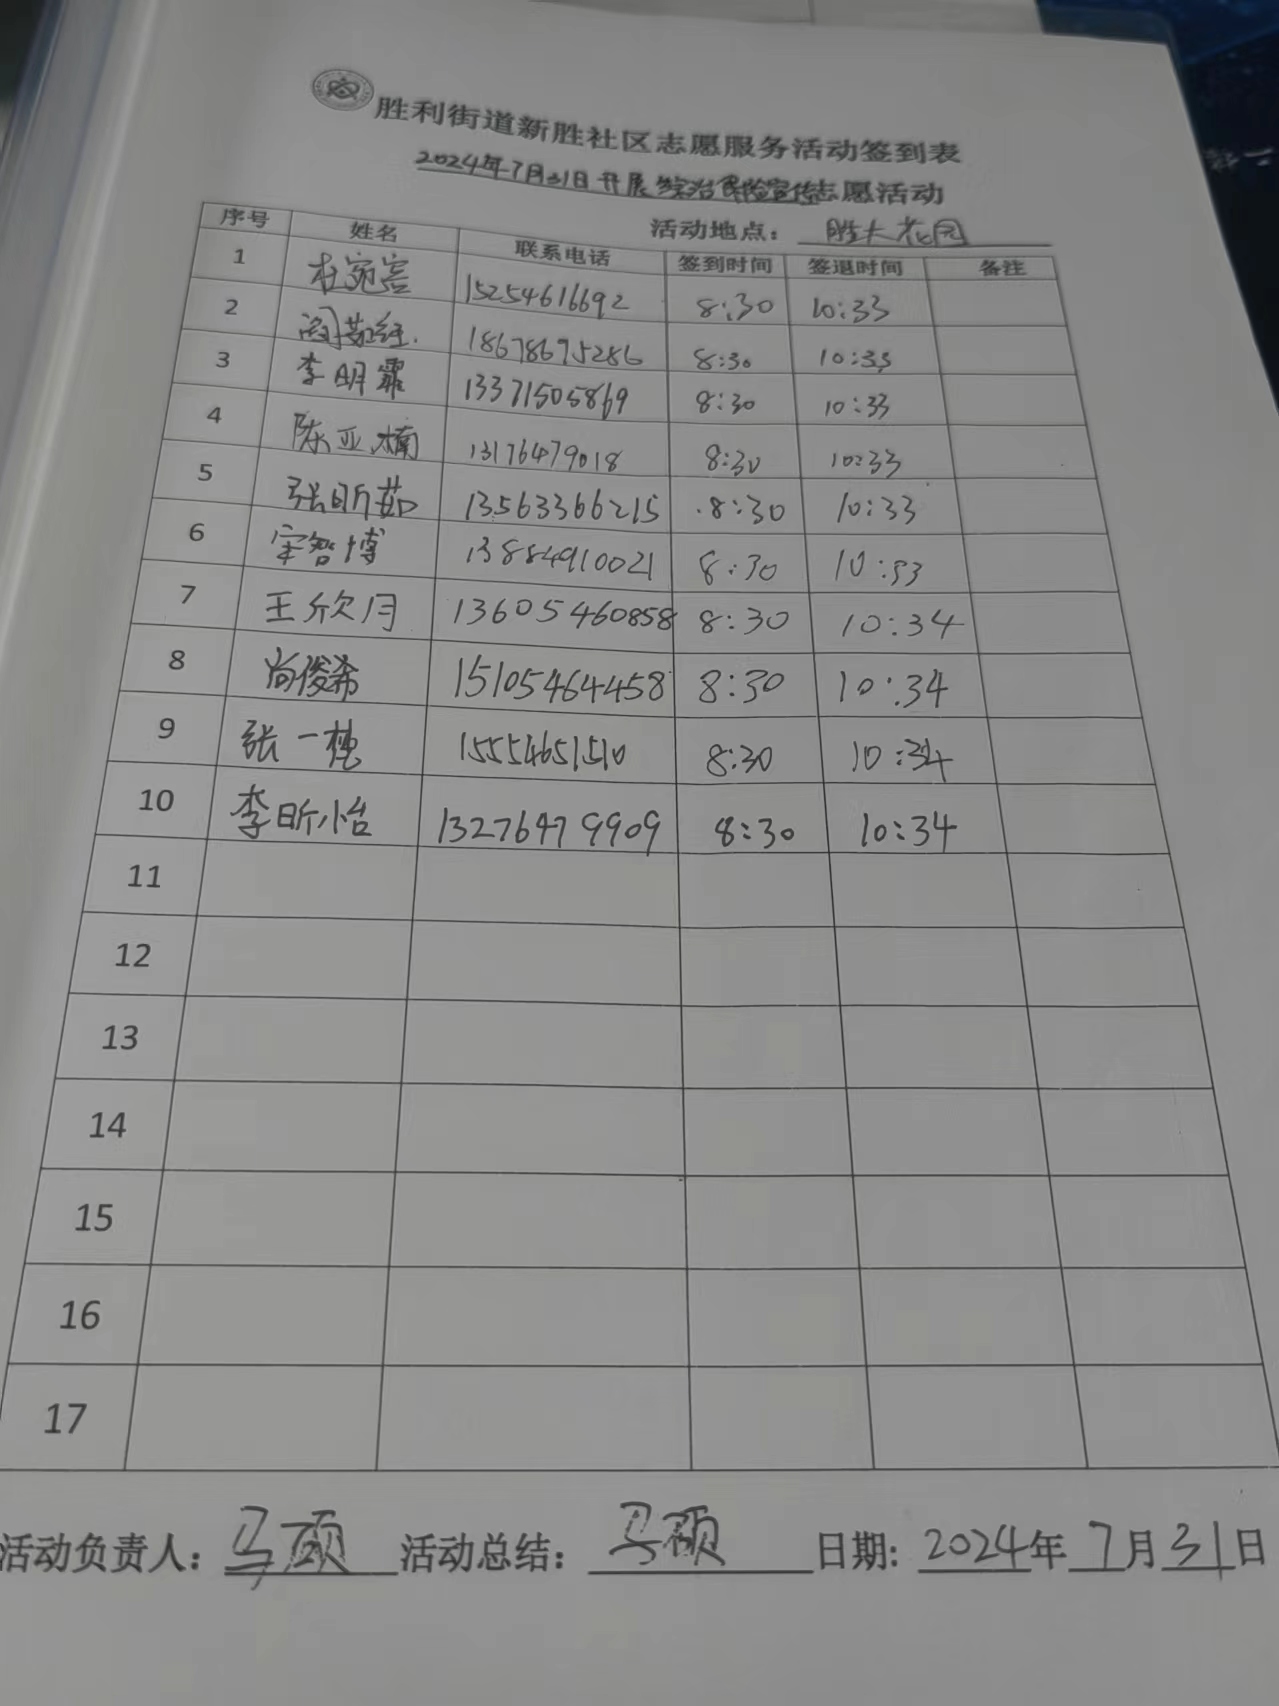 胜利街道新胜社区志愿服务活动签到表
2024年7月31日开展综治保险宣传志愿活动
活动地点：胜大花园
序号 姓名 联系电话 签到时间 签退时间 备注
1 杜宛容 15254616692 8:30 10:33
2 18678695286 8:30 10:33
3 李明霏 13371505869 8:30 10:33
4 陈亚楠 13176479018 8:30 10:33
5 张昕茹 13563366215 8:30 10:33
6 宋智博 13884910021 8:30 10:33
7 王欣月 13605460858 8:30 10:34
8 尚俊希 15105464458 8:30 10:34
9 张一 15554651510 8:30 10:34
10 李昕怡 13276479909 8:30 10:34
11
12
13
14
15
16
17
活动负责人：马硕 活动总结：马硕 日期：2024年7月31日